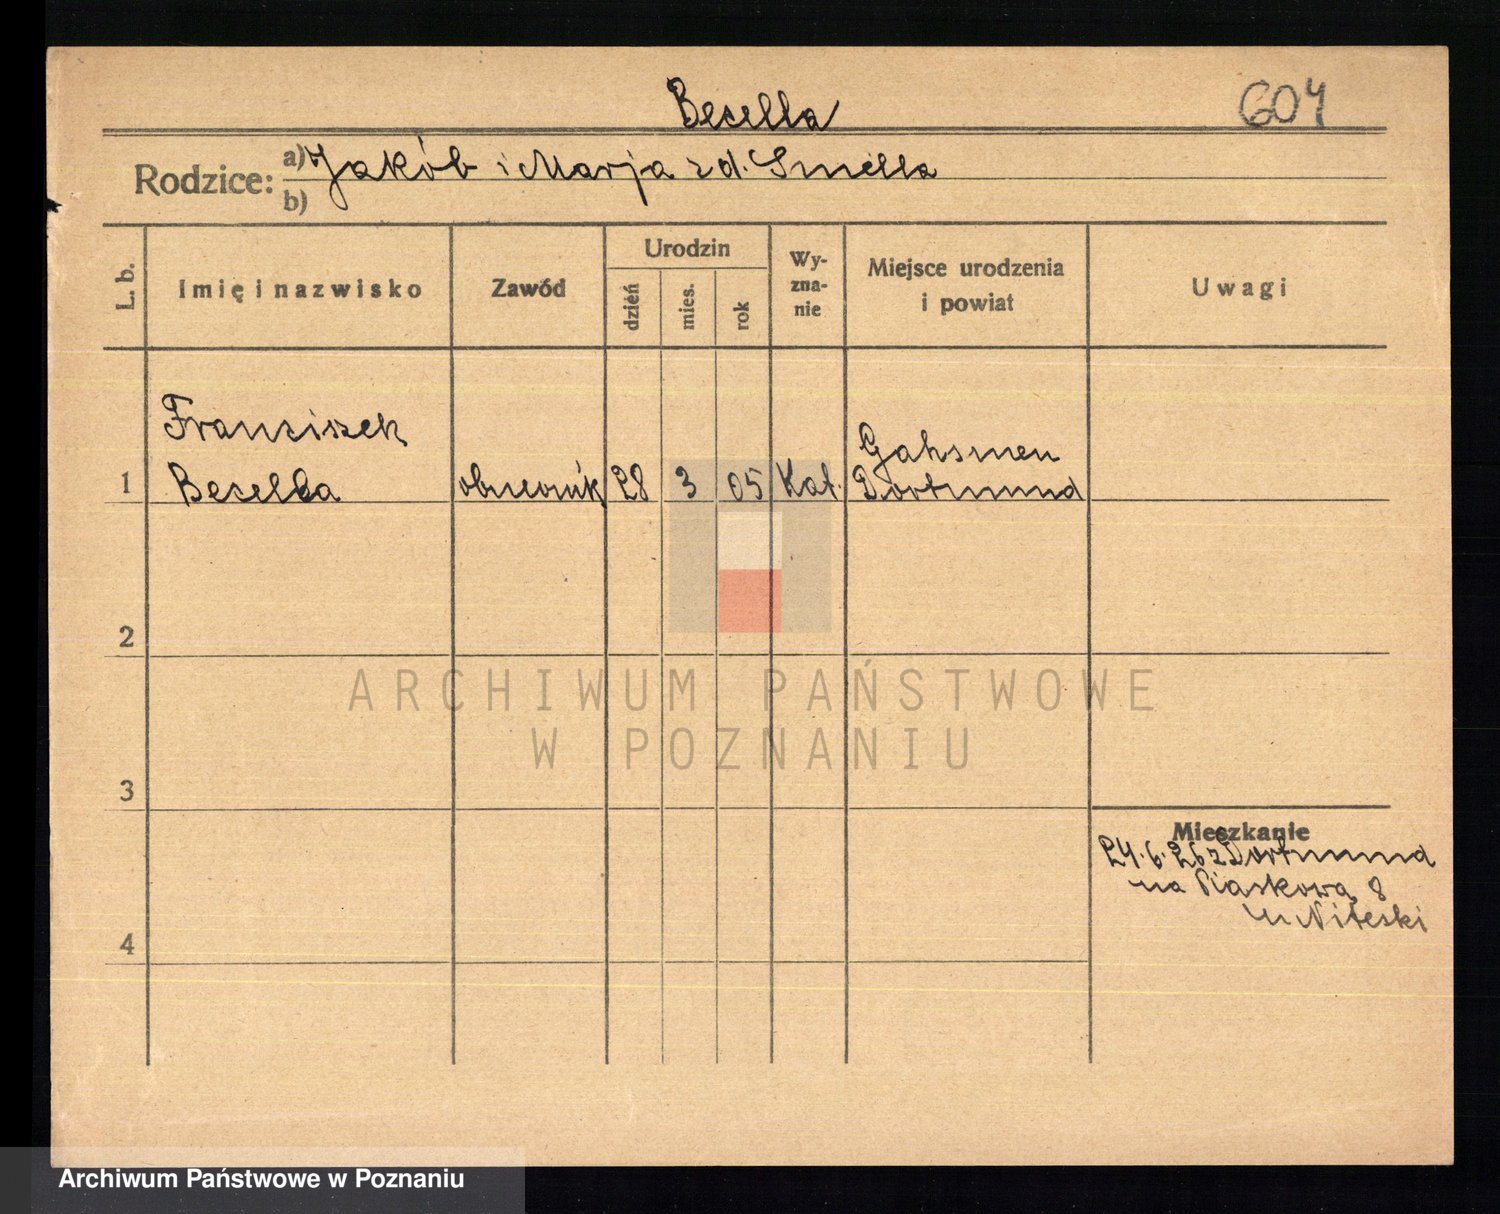 Beselba
604
Rodzice:
a) Jakób i Marja z d. Smella
b)
L. b.
Imię i nazwisko
Zawód
Urodzin
dzień
mies.
rok
Wy-
zna-
nie
Miejsce urodzenia
i powiat
Uwagi
Franciszek
Gahsmen
1 28 3 05 Kat. Dortmund
2
ARCHIWUM PAŃSTWOWE
W POZNANIU
3
Mieszkanie
24.6.26 z Dortmund
na Piaskową 8
4
Archiwum Państwowe w Poznaniu